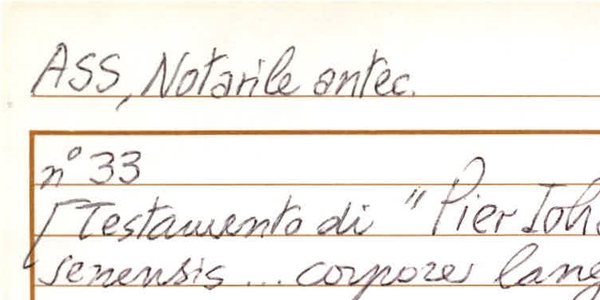 ASS, Notarile antec.
n° 33
[Testamento di "Pier Joh
senensis ... corpore lang